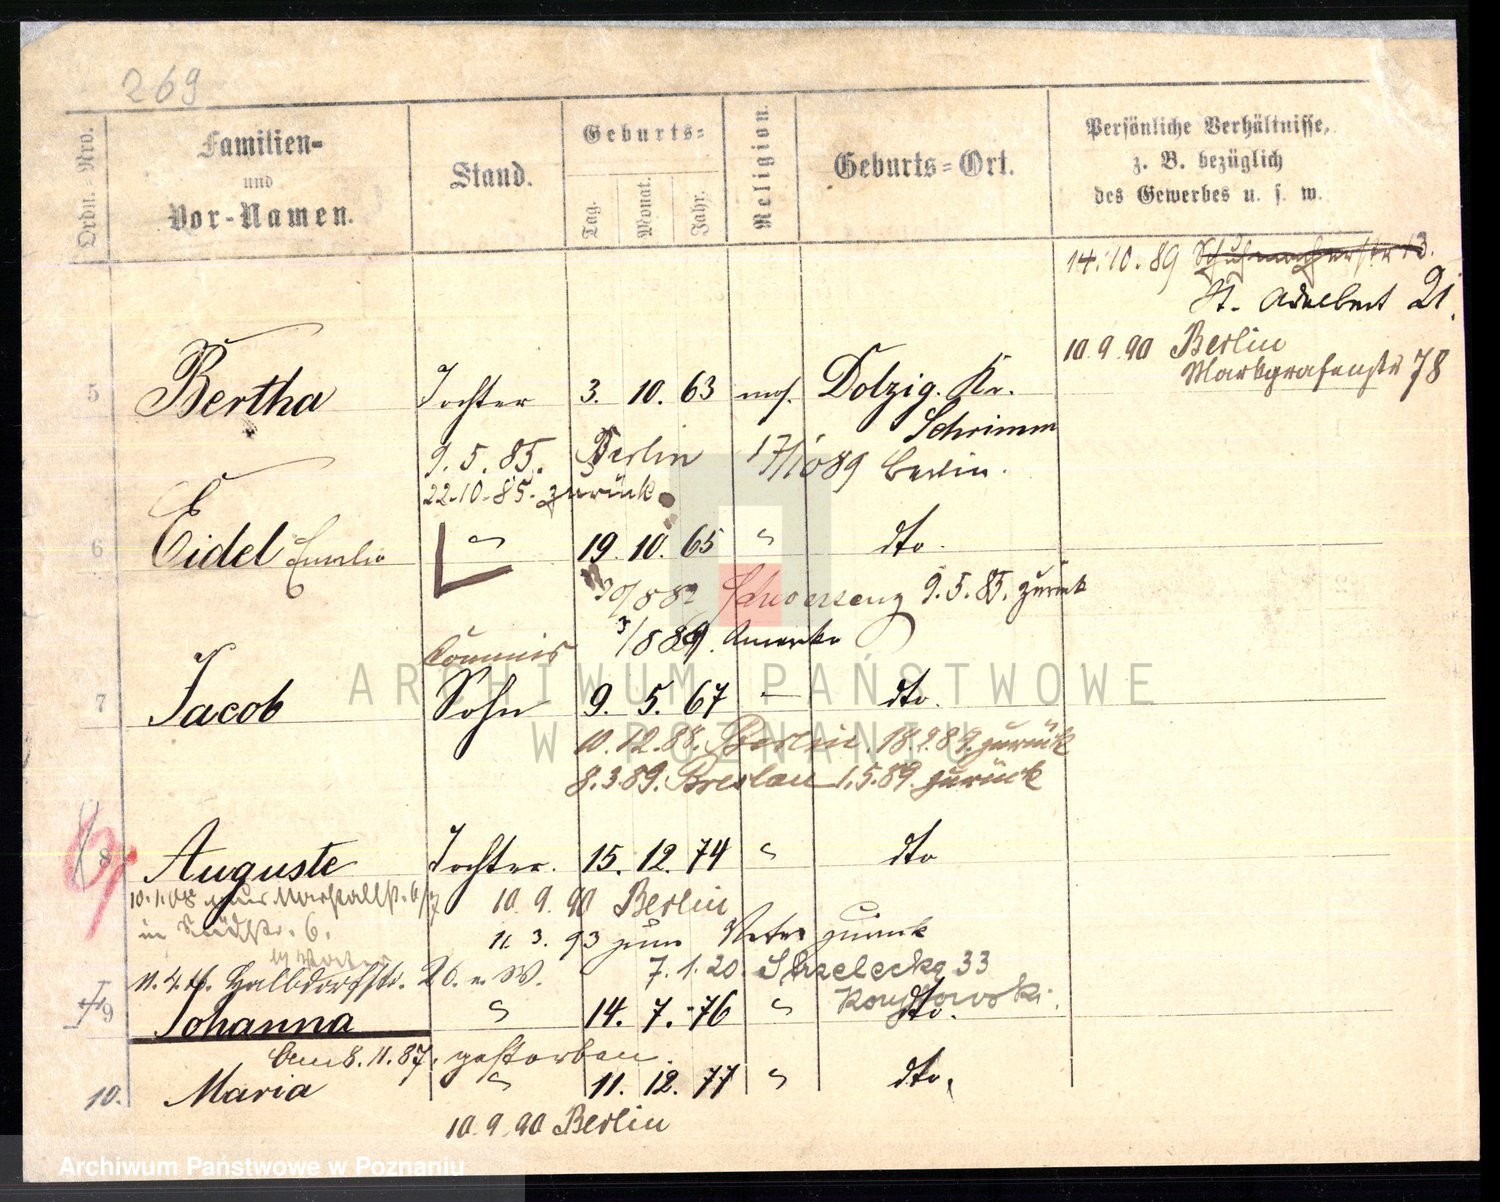 269
Ordn.=Nro.
Familien-
und
Vor-Namen.
Stand.
Geburts=
Tag.
Monat.
Jahr.
Religion.
Geburts=Ort.
Persönliche Verhältnisse,
z. B. bezüglich
des Gewerbes u. s. w.
14.10.89 Schuhmacherstr 13.
St. Adalbert 21.
10.9.90 Berlin
Markgrafenstr 78
5 Bertha Tochter 3. 10. 63 mos. Dolzig. Kr.
Schrimm
9.5.85. Berlin 17/10 89 Berlin.
22.10.85. zurück
6 Eidel " 19. 10. 65 " dto.
Schwersenz 9.5.85. zurück
3/8 89. Amerika
Commis
7 Jacob Sohn 9. 5. 67 dto.
10.12.88. Berlin 18.2.89. zurück
8.3.89. Breslau 1.5.89. zurück
8 Auguste Tochter. 15. 12. 74 " dto
10. 9. 90 Berlin
in Südstr. 6.
11. 3. 93 zum Vater zurück
Halbdorfstr. 20. 7.1.20. Strzelecka 33
9 Johanna " 14. 7. 76 " dto.
am 8.11.87. gestorben.
10. Maria " 11. 12. 77 " dto.
10.9.90 Berlin
ARCHIWUM PAŃSTWOWE
W POZNANIU
Archiwum Państwowe w Poznaniu